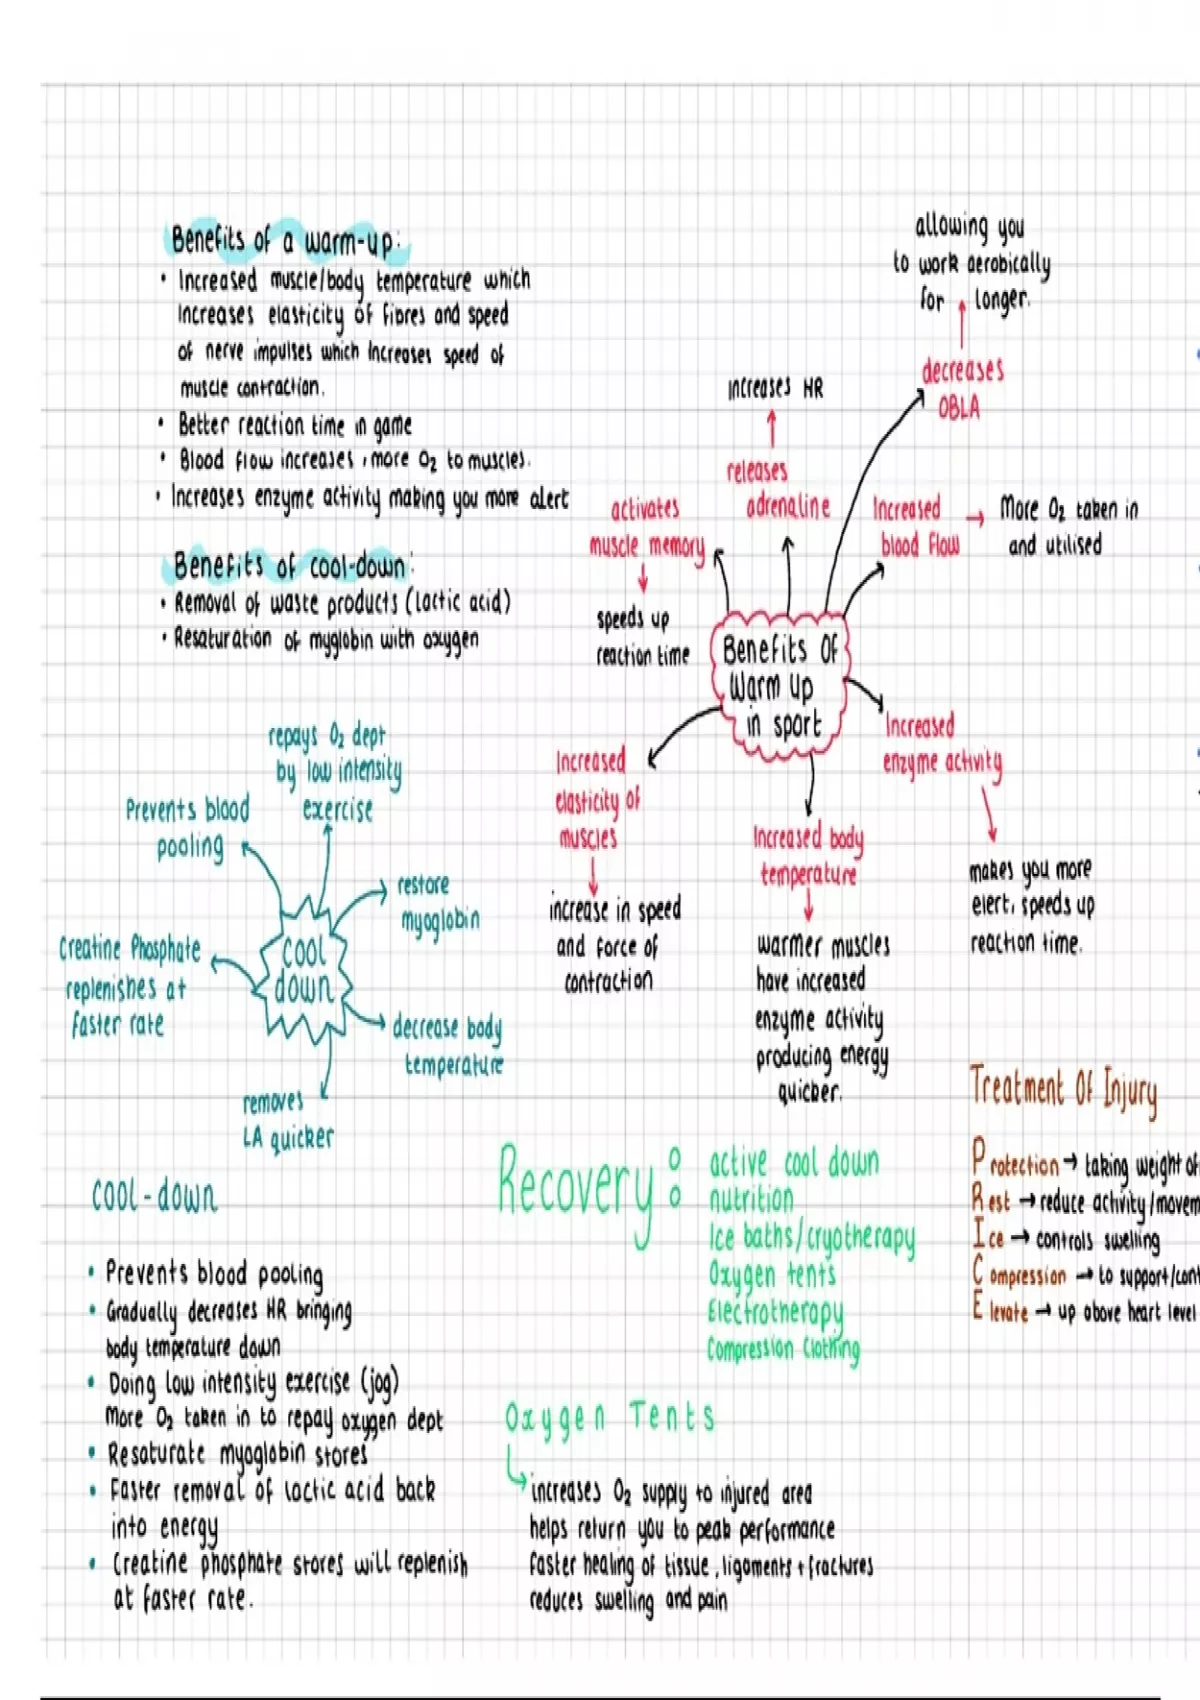 Benefits of a warm-up:
• Increased muscle/body temperature which
Increases elasticity of fibres and speed
of nerve impulses which Increases speed of
muscle contraction.
• Better reaction time in game
• Blood flow increases, more O2 to muscles.
• Increases enzyme activity making you more alert
Benefits of cool-down:
• Removal of waste products (lactic acid)
• Resaturation of myglobin with oxygen
allowing you
to work aerobically
for longer.
decreases
OBLA
increases HR
releases
adrenaline
activates
muscle memory
speeds up
reaction time
Increased
blood flow
→ More O2 taken in
and utilised
Benefits Of
Warm up
in sport
Increased
elasticity of
muscles
increase in speed
and force of
contraction
Increased body
temperature
warmer muscles
have increased
enzyme activity
producing energy
quicker.
Increased
enzyme activity
makes you more
elert, speeds up
reaction time.
repays O2 dept
by low intensity
exercise
Prevents blood
pooling
restore
myoglobin
Creatine Phosphate
replenishes at
faster rate
COOL
down
decrease body
temperature
removes
LA quicker
COOL-down
• Prevents blood pooling
• Gradually decreases HR bringing
body temperature down
• Doing low intensity exercise (jog)
More O2 taken in to repay oxygen dept
• Resaturate myoglobin stores
• Faster removal of lactic acid back
into energy
• Creatine phosphate stores will replenish
at faster rate.
Recovery:
active cool down
nutrition
Ice baths/cryotherapy
Oxygen tents
Electrotherapy
Compression Clothing
Oxygen Tents
increases O2 supply to injured area
helps return you to peak performance
faster healing of tissue, ligaments + fractures
reduces swelling and pain
Treatment Of Injury
Protection → taking weight of
Rest → reduce activity/movem
Ice → controls swelling
Compression → to support/cont
Elevate → up above heart level